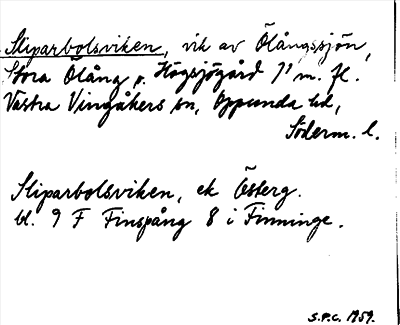 Sliparbolsviken, vik av Ölångssjön,
Stora Ölång p. Högsjögård 7¹ m. fl.
Västra Vingåkers sn, Oppunda hd,
Söderm. l.
Sliparbolsviken, ek Österg.
bl. 9 F Finspång 8 i Finninge.
S.P.C. 1959.